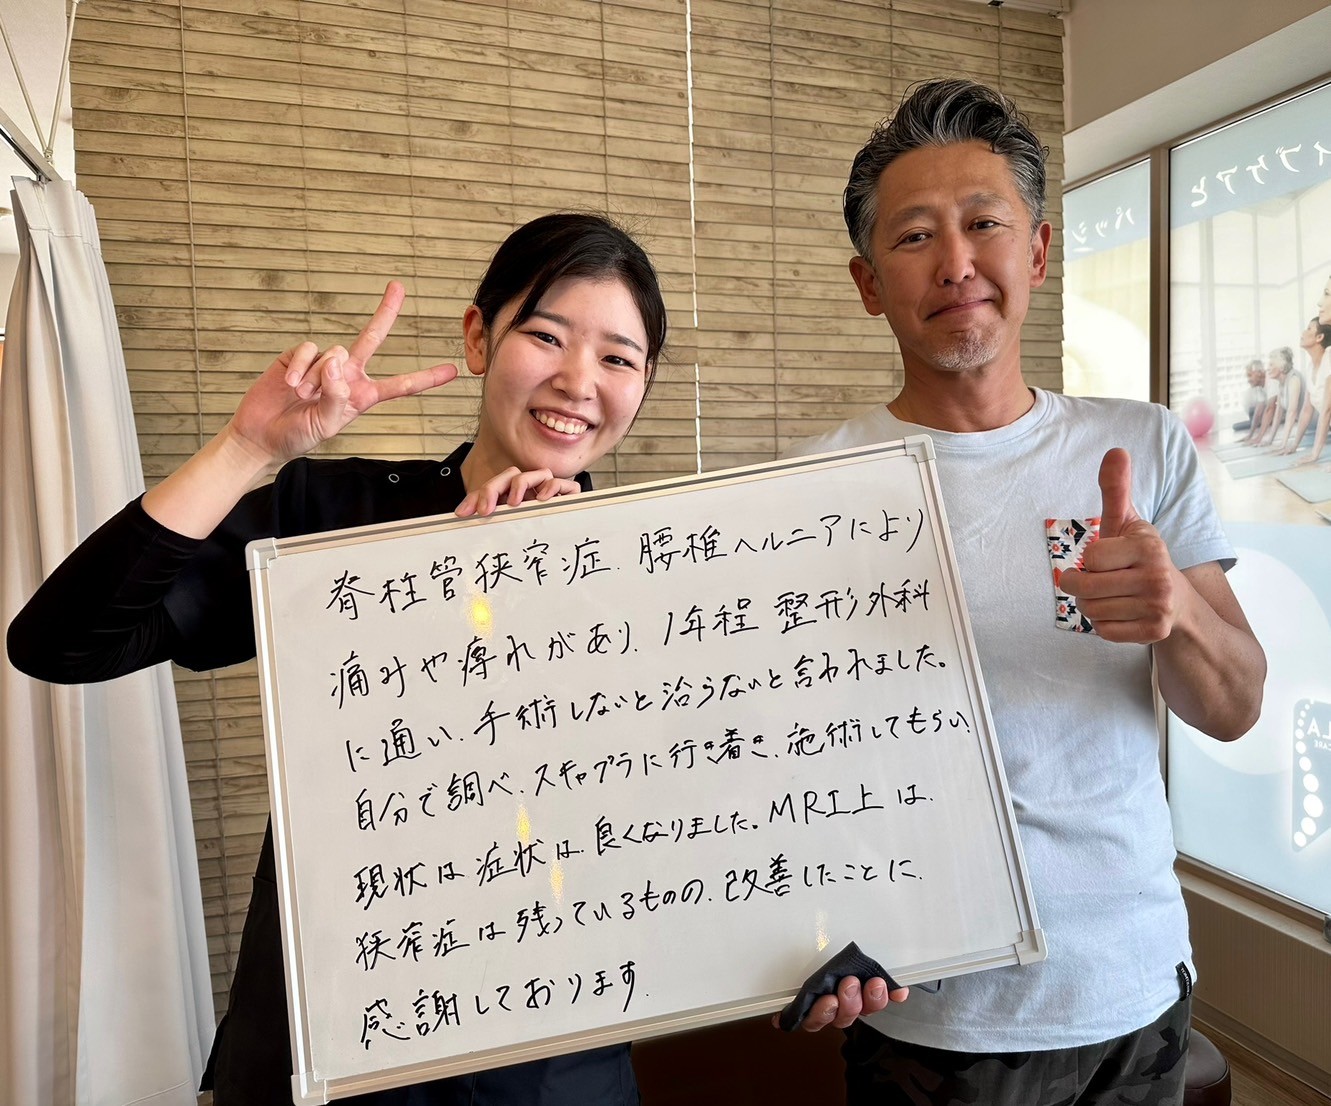 脊柱管狭窄症、腰椎ヘルニアにより
痛みや痺れがあり、1年程 整形外科
に通い、手術しないと治らないと言われました。
自分で調べ、スキャプラに行き着き、施術してもらい、
現状は症状は、良くなりました。MRI上は、
狭窄症は残っているものの、改善したことに、
感謝しております。
ィブケアと
パッシ
LA
CARE